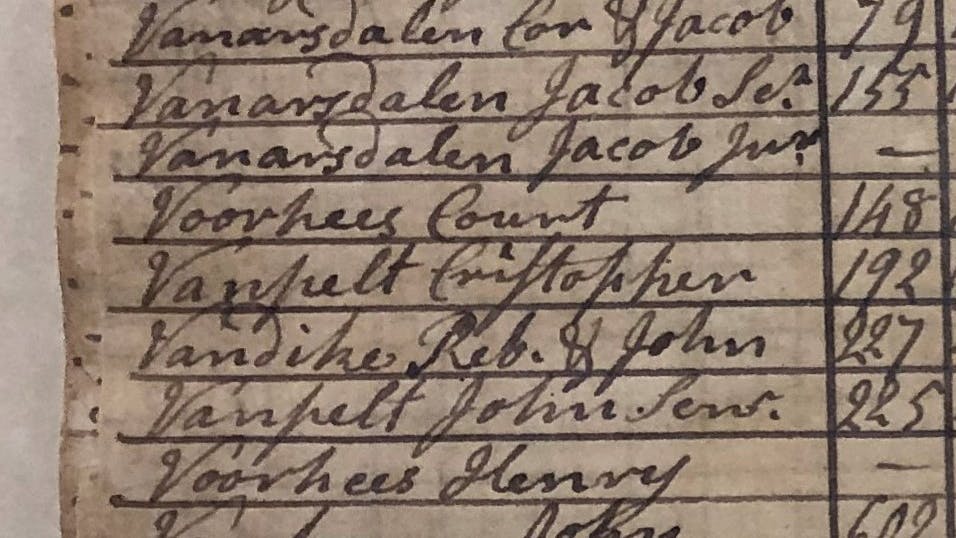 Vanarsdalen Cor & Jacob 79
Vanarsdalen Jacob Sen. 155
Vanarsdalen Jacob Junr. —
Voorhees Court 148
Vanpelt Cristopher 192
Vandike Reb. & John 227
Vanpelt John Senr. 225
Voorhees Henry —
John 602